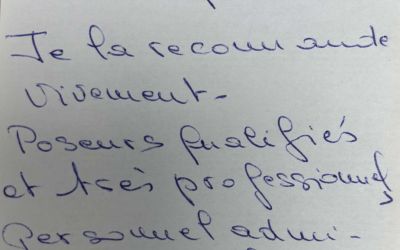 Je la recommande
vivement-
Poseurs qualifiés
et très professionnels,
Personnel admi-